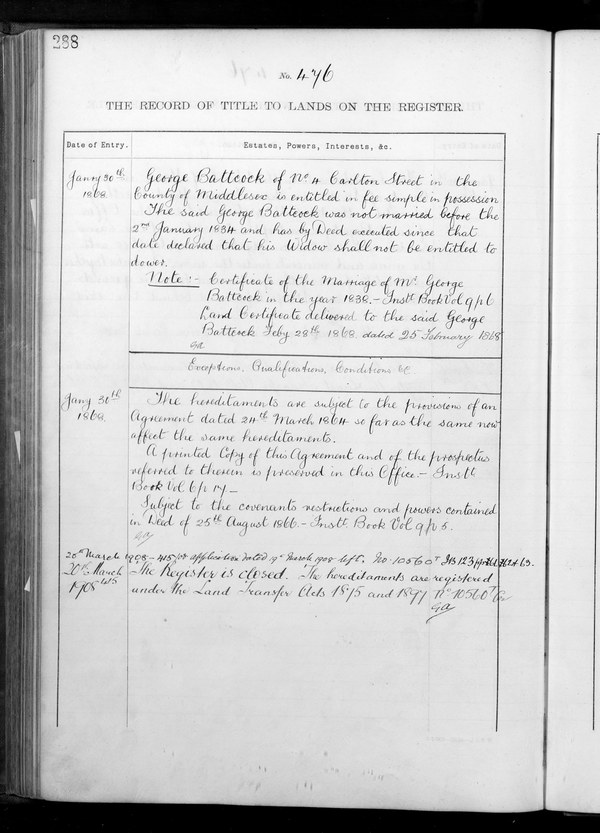 288
No. 476
THE RECORD OF TITLE TO LANDS ON THE REGISTER.
Date of Entry.
Estates, Powers, Interests, &c.
Janry 30th
1868
George Battcock of No 4 Carlton Street in the
County of Middlesex is entitled in fee simple in possession
The said George Battcock was not married before the
2nd January 1834 and has by Deed executed since that
date declared that his Widow shall not be entitled to
dower.
Note :- Certificate of the Marriage of Mr George
Battcock in the year 1838. - Instt Book Vol 9 p 6
Land Certificate delivered to the said George
Battcock Feby 28th 1868 dated 25 February 1868
Exceptions, Qualifications, Conditions &c
Jany 30th
1868
The hereditaments are subject to the provisions of an
Agreement dated 24th March 1864 so far as the same now
affect the same hereditaments.
A printed Copy of this Agreement and of the prospectus
referred to therein is preserved in this Office. - Instt
Book Vol 6 p 17 -
Subject to the covenants restrictions and powers contained
in Deed of 25th August 1866. - Instt Book Vol 9 p 5.
20th March 1908 - application dated 19th March 1908 No 10560
20th March
1908
The Register is closed. The hereditaments are registered
under the Land Transfer Acts 1875 and 1897 No 10560